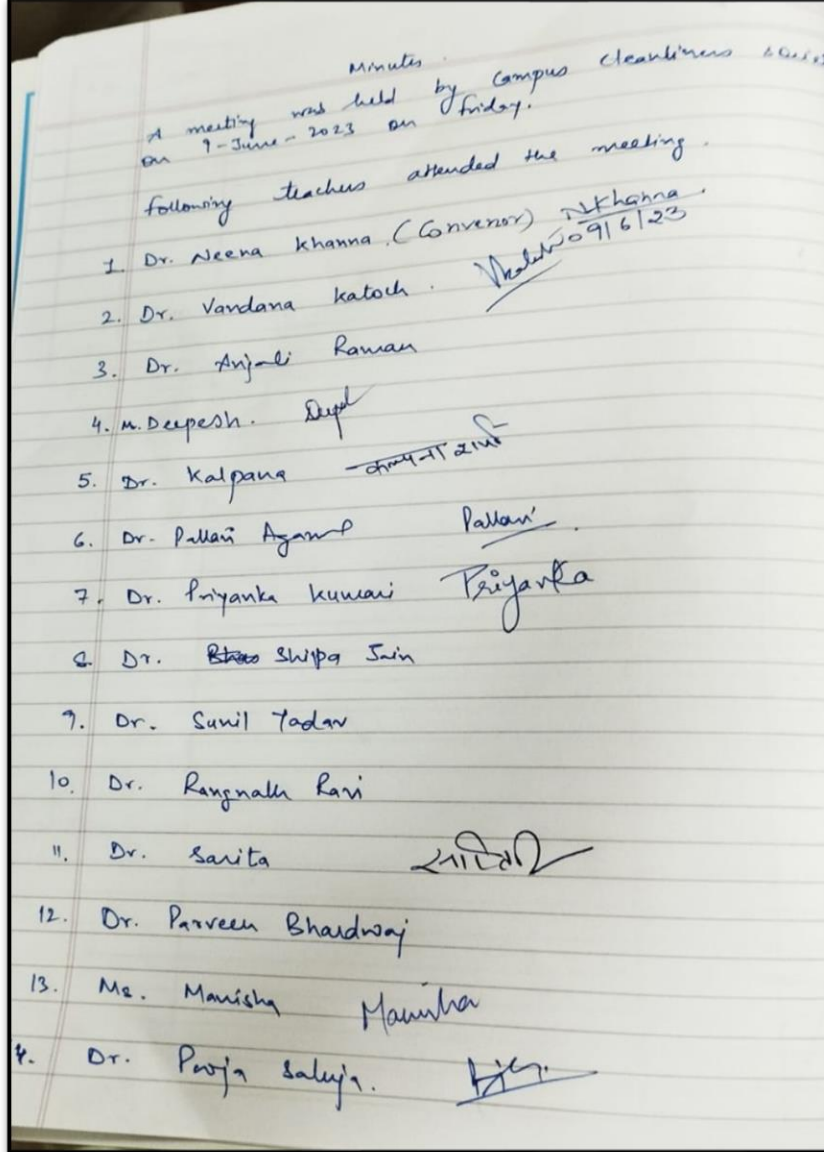 Minutes.
A meeting was held by Campus Cleanliness
on 9-June-2023 on friday.
following teachers attended the meeting.
1. Dr. Neena Khanna. (Convenor) NKhanna
09/6/23
2. Dr. Vandana Katoch.
3. Dr. Anjali Raman
4. M. Deepesh.
5. Dr. Kalpana कल्पना
6. Dr. Pallavi Agarwal Pallavi
7. Dr. Priyanka Kumari Priyanka
8. Dr. Shipa Jain
9. Dr. Sunil Yadav
10. Dr. Rangnath Ravi
11. Dr. Sarita
12. Dr. Parveen Bhardwaj
13. Ms. Manisha Manisha
4. Dr. Pooja Saluja.